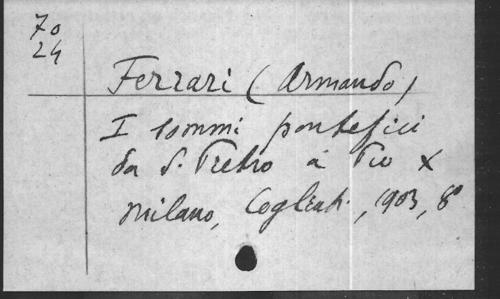 70
24
Ferrari (Armando)
I sommi pontefici
da S. Pietro a Pio X
Milano, Cogliati, 1903, 8º